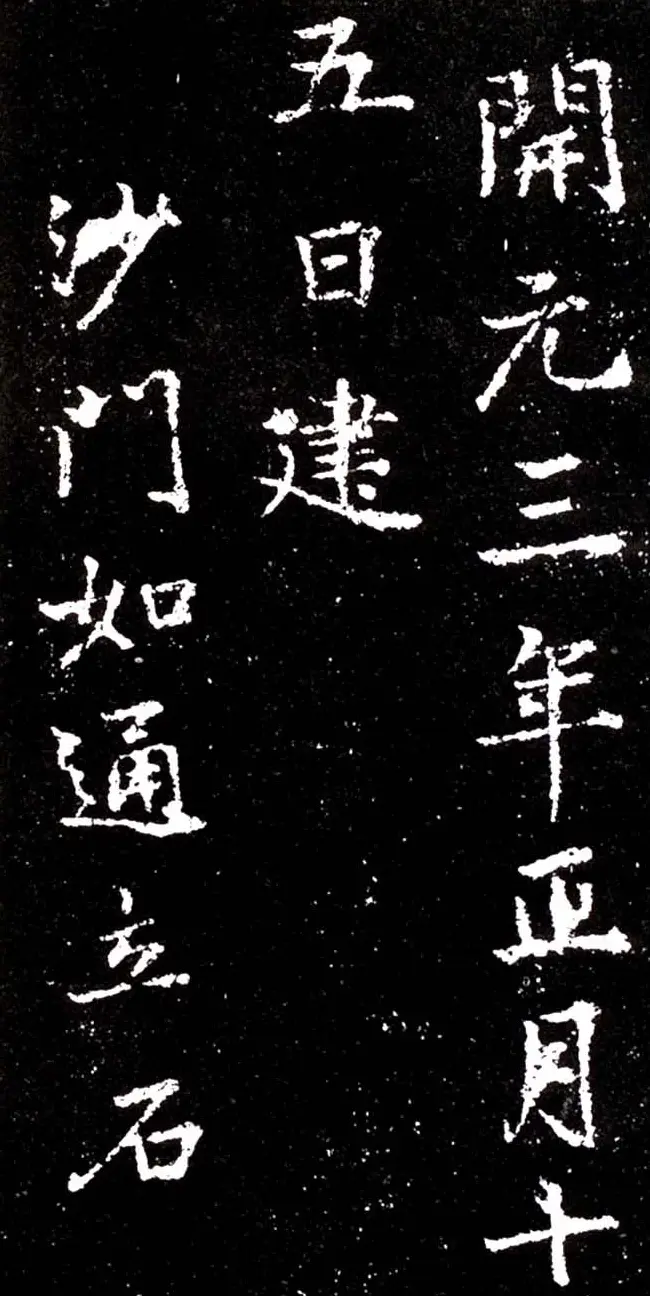 開元三年正月十
五日建
沙門如通立石